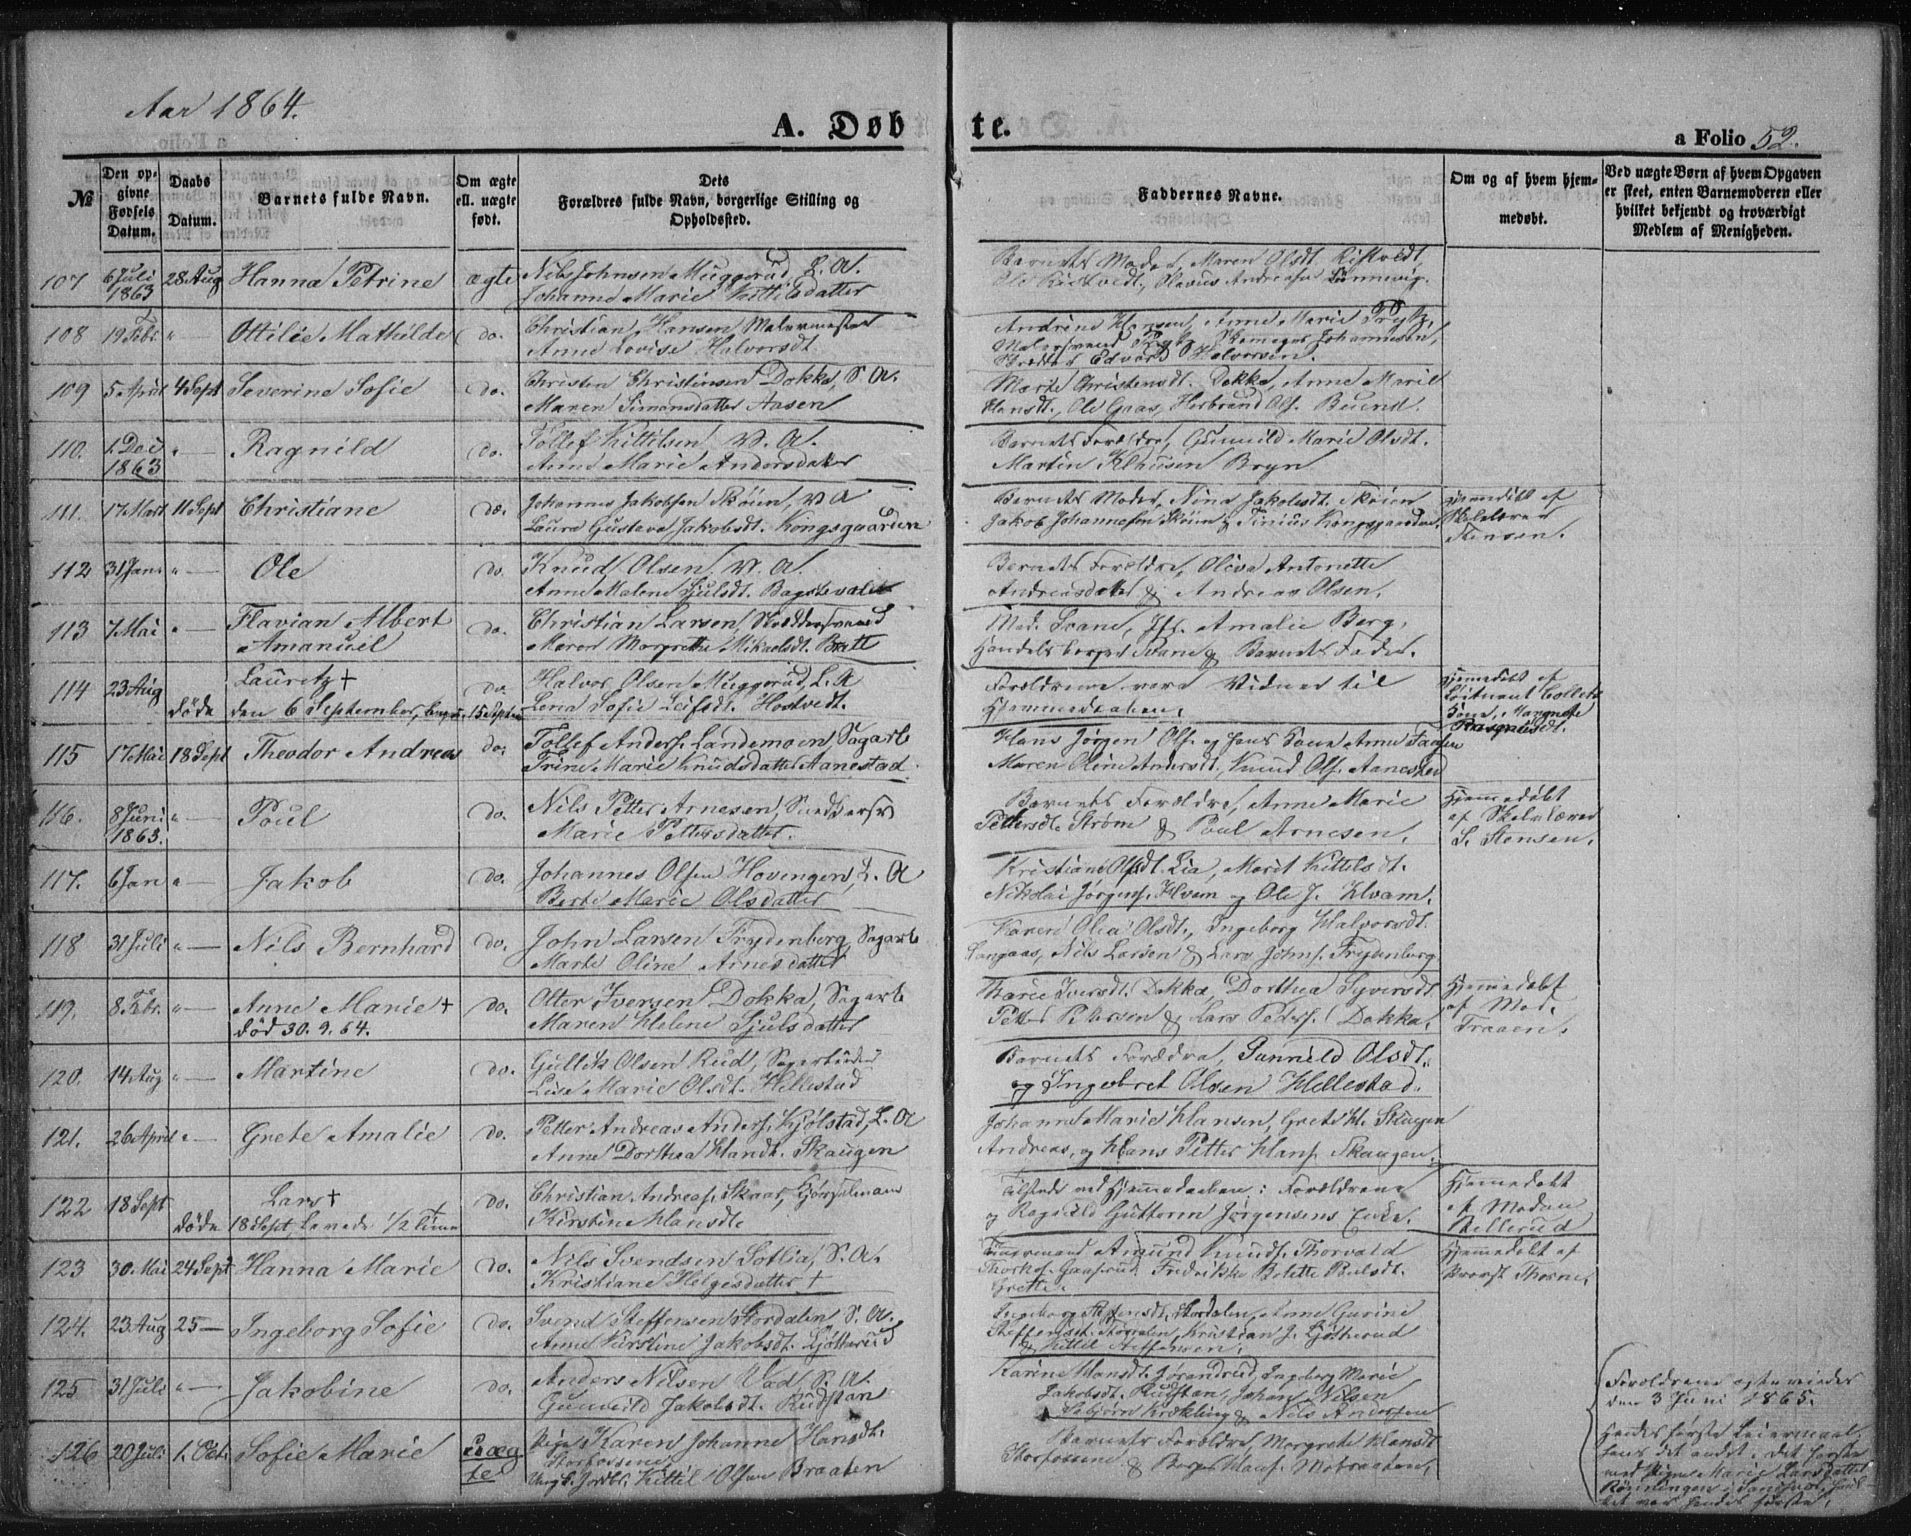 Aar 1864.
A. Døbte.
a Folio 52.
№
Den opgivne Fødsels Datum.
Daabs Datum.
Barnets fulde Navn.
Om ægte ell. uægte født.
Dets Forældres fulde Navn, borgerlige Stilling og Opholdssted.
Faddernes Navne.
Om og af hvem hjemmedøbt.
Ved uægte Børn af hvem Opgaven er skeet, enten Barnemoderen eller hvilket bekjendt og troværdigt Medlem af Menigheden.
107 6 Juli 1863 28 Aug Hanna Petrine ægte Nils Johnsen Muggerud, L. A.
Johanne Marie Kittilsdatter
Barnets Moder, Maren Olsdt. Ristvedt,
Ole Ristvedt, Olavus Andreasen
108 19 Febr. " — Ottilie Mathilde do. Christian Hansen Malermester
Anne Lovise Halvorsdt.
Andrine Hansen, Anne Marie
Malersvend Johannesen,
Edvard Halvorsen.
109 5 April 4 Sept Severine Sofie do. Christen Christensen Dokka, S. A.
Maren Simonsdatter Aasen
Marte Christensdt. Dokka, Anne Marie
Hansdt., Ole Herbrand Ols.
110. 1. Dec 1863 " — Ragnild do. Tollef Kittilsen V. A.
Anne Marie Andersdatter
Barnets Forældre, Gunnild Marie Olsdt.
Martin Bryn
111. 17 Mart 11 Sept Christiane do. Johannes Jakobsen Skøien, V A
Laura Gustava Jakobsdt. Kongsgaarden
Barnets Moder, Nina Jakobsdt. Skøien
Jakob Johannesen Skøien & Tinius Kongsgaarden.
hjemdøbt af
Skolelærer
Stensen.
112 31 Jan. " — Ole do. Knud Olsen V. A.
Anne Malene Bagstevalet
Barnets Forældre, Oliva Antonette
Andreasdatter & Andreas Olsen.
113 7 Mai " — Flavian Albert
Amanuel do. Christian Larsen
Maren Margrethe Mikaelsdt. Bratt
Mad. Svane, Jfr. Amalie Berg,
Handelsborger Svane & Barnets Fader.
114 23 Aug Lauretz † do. Halvor Olsen Muggerud, L. A
døde den 6 September, 15 Septbr Lena Sofie Leifsdt. Hostvedt.
Forældrene vare Vidner til
Hjemmedaaben.
hjemdøbt af
Løitnant Colletts
Kone, Margrete
115 17 Mai 18 Sept Theodor Andreas do. Tollef Anders. Landemoen Sagarb
Trine Marie Knudsdatter Aanestad
Hans Jørgen Ols. og hans Kone Anne
Maren Oline Andersdt., Knud Ols. Aanestad
116. 8 Juni 1863. " — Poul do. Nils Petter Arnesen,
Marie Pettersdatter.
Barnets Forældre, Anne Marie
Pettersdt. Strøm & Poul Arnesen.
Hjemmedøbt
af Skolelærer
S. Stensen.
117. 6 Jan " — Jakob do. Johannes Olsen Hovengen, L. A
Berte Marie Olsdatter
Kristiane Olsdt. Lia, Marit Kittelsdt.
Nikolai Jørgens. Hvam og Ole J. Hvam.
118 31 Juli " — Nils Bernhard do. John Larsen Frydenberg, Sagarb
Marte Oline Arnesdatter
Karen Olea Olsdt., Ingeborg Halvorsdt.
Langaas, Nils Larsen & Lars Johns. Frydenberg
119. 8 Febr. " — Anne Marie † do. Otter Iversen Dokka, Sagarb
død 30. 9. 64. Maren Helene Sjulsdatter
Marie Iversdt. Dokka, Dorthea Syversdt
Petter Pettersen & Lars Peders. Dokka.
Hjemmedøbt
af Mad.
Traaen.
120. 14 Aug " — Martine do. Gullik Olsen Rud, Sagarbeider
Lise Marie Olsdt. Hellestad
Barnets Forældre, Gunnild Olsdt.
og Ingebret Olsen Hellestad.
121. 26 April " — Grete Amalie do. Petter Andreas Anders. Kjølstad, L. A
Anne Dorthea Hansdt. Skaugen
Johanne Marie Hansen, Grete H. Skaugen
Andreas, og Hans Petter Hans. Skaugen.
122 18 Sept Lars † do. Christian Andreas. Skaar,
døde 18 Sept, Levede 1/2 Time † Kirstine Hansdt.
Tilstede ved Hjemmedaaben: Forældrene
og Ragnild Guttorm Jørgensens Enke.
Hjemmedøbt
af Madam
Hellerud
123 30. Mai 24 Sept Hanna Marie do. Nils Svendsen Sotlia, S. A.
Kristiane Helgesdatter †
Amund Knuds. Thorvald
Fredrikke Bolette Paulsdt.
Grette.
Hjemmedøbt af
Provst Thorne.
124. 23 Aug 25 — Ingeborg Sofie do. Svend Steffensen Stordalen, S. A.
Anne Kirstine Jakobsdt. Ljøtterud
Ingeborg Steffensdt. Stordalen, Anne Gurine
Steffensdt. Stordalen, Kristian J. Ljøtterud
& Kittil Steffensen.
125 31 Juli " — Jakobine do. Anders Nilsen Vad S. A.
Gunnild Jakobsdt. Rudstan
Karine Hansdt. Jørandrud, Ingeborg Marie
Jakobsdt. Rudstan, Johan Nilsen
& Nils Andersen
126 20 Juli 1. Oct. Sofie Marie uægte Pige Karen Johanne Hansdt.
Storfossene
Ungk. Kittil Olsen Braaten
Barnets Forældre, Margrete Hansdt
Storfossene & Hans. Mobraaten.
Forældrene ægteviedes
den 3 Juni 1865.
Hendes første Leiermaal,
hans det andet. Det første
med Pigen Marie Larsdatter
Rønningen i Sandsvær,
det var hendes første.